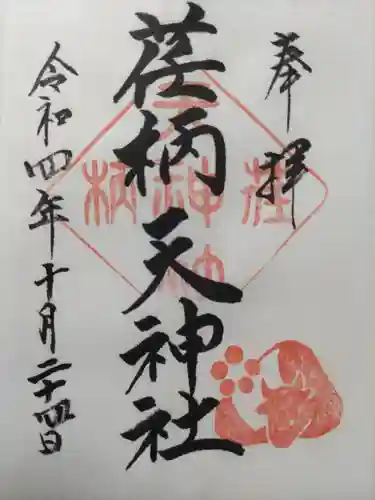 奉拝
荏柄天神社
令和四年十月二十四日